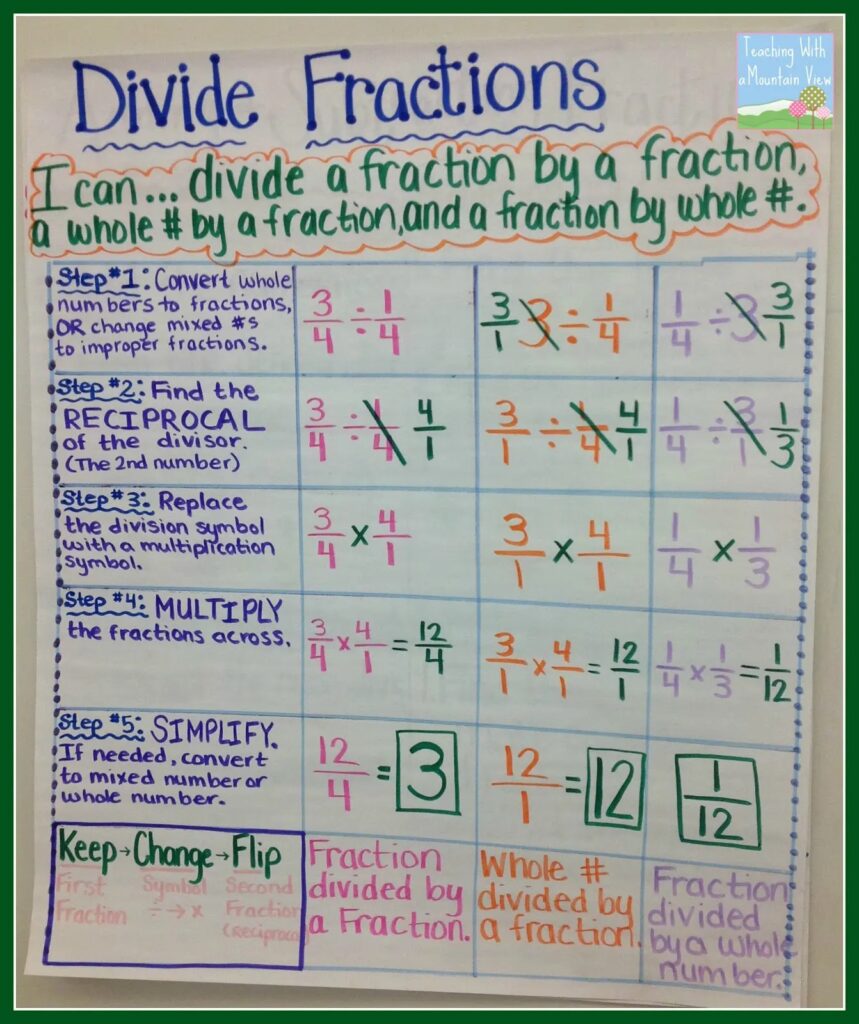 Teaching With
a Mountain View
Divide Fractions
I can... divide a fraction by a fraction,
a whole # by a fraction, and a fraction by whole #.
Step #1: Convert whole
numbers to fractions,
OR change mixed #s
to improper fractions.
3/4 ÷ 1/4
3/1 3 ÷ 1/4
1/4 ÷ 3 3/1
Step #2: Find the
RECIPROCAL
of the divisor.
(The 2nd number)
3/4 ÷ 1/4 4/1
3/1 ÷ 1/4 4/1
1/4 ÷ 3/1 1/3
Step #3: Replace
the division symbol
with a multiplication
symbol.
3/4 x 4/1
3/1 x 4/1
1/4 x 1/3
Step #4: MULTIPLY
the fractions across.
3/4 x 4/1 = 12/4
3/1 x 4/1 = 12/1
1/4 x 1/3 = 1/12
Step #5: SIMPLIFY.
If needed, convert
to mixed number or
whole number.
12/4 = 3
12/1 = 12
1/12
Keep → Change → Flip
First Symbol Second
Fraction ÷ → x Fraction
(Reciprocal
Fraction
divided by
a Fraction.
Whole #
divided by
a fraction.
Fraction
divided
by a whole
number.